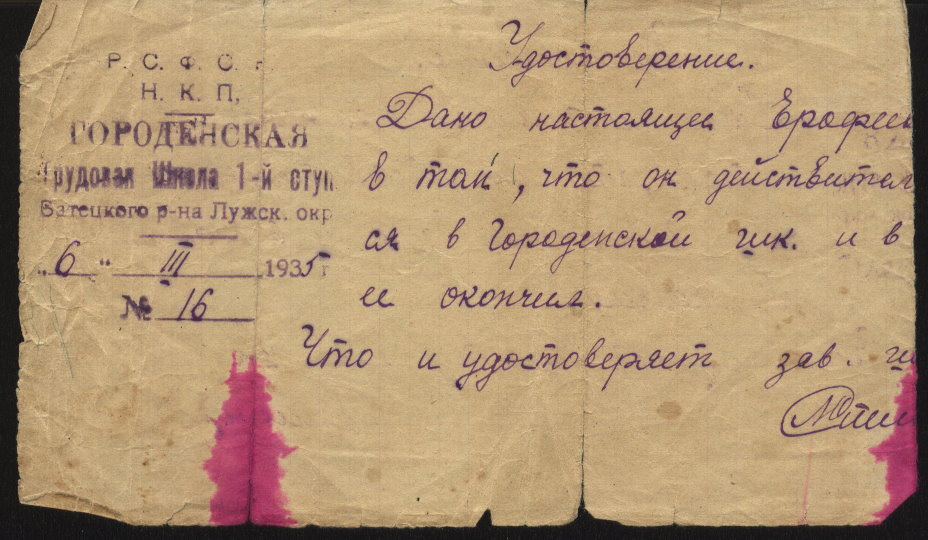 Р. С. Ф. С. Р
Н. К. П.
ГОРОДЕНСКАЯ
Трудовая Школа 1-й ступ
Батецкого р-на Лужск. окр
„6" III 1935 г
№ 16
Удостоверение.
Дано настоящее Ерофеев
в том, что он действител
ся в Городенской шк. и в
ее окончил.
Что и удостоверяет зав. ш